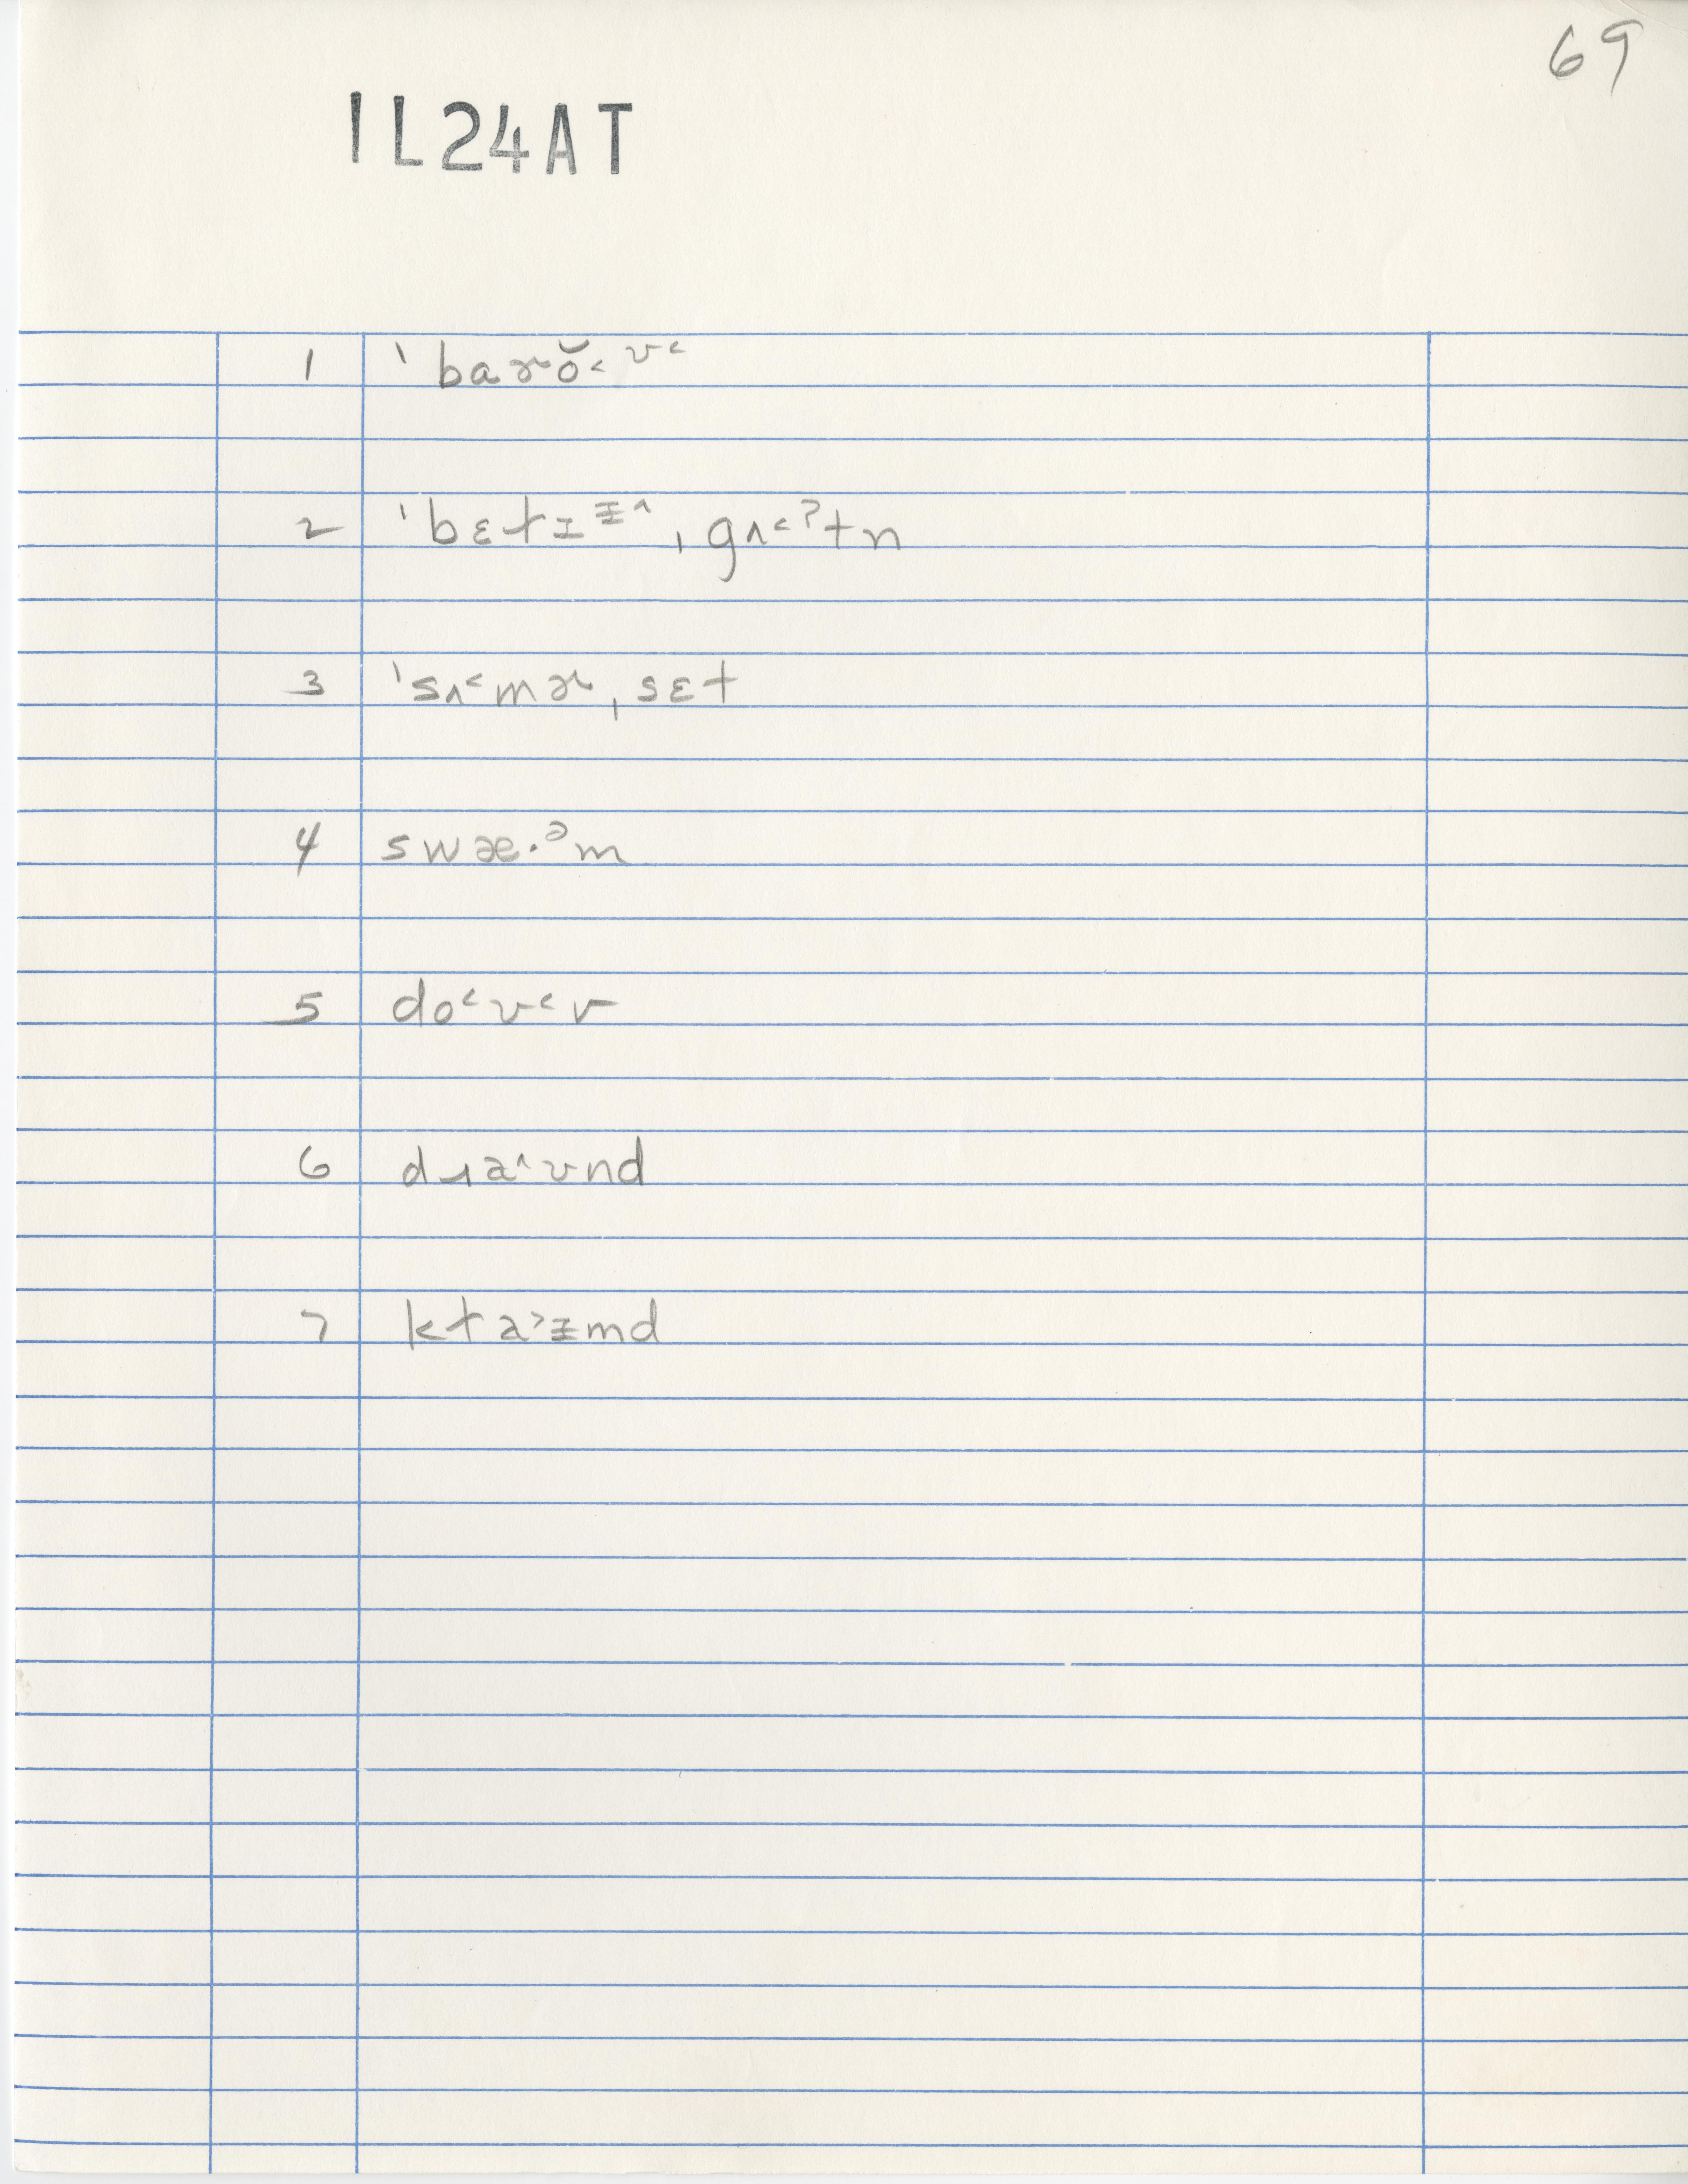 69
IL24AT
1 ˈbaɚŏ˂ ᶹ˂
2 ˈbɛɫɪ ᵻ˄ ˌgʌ˂ˀtn
3 ˈsʌ˂mɚˌsɛt
4 swæ·ᵊm
5 do˂ʊ˂v
6 dɹa˄ʊnd
7 kɫa˃ɪ̵md